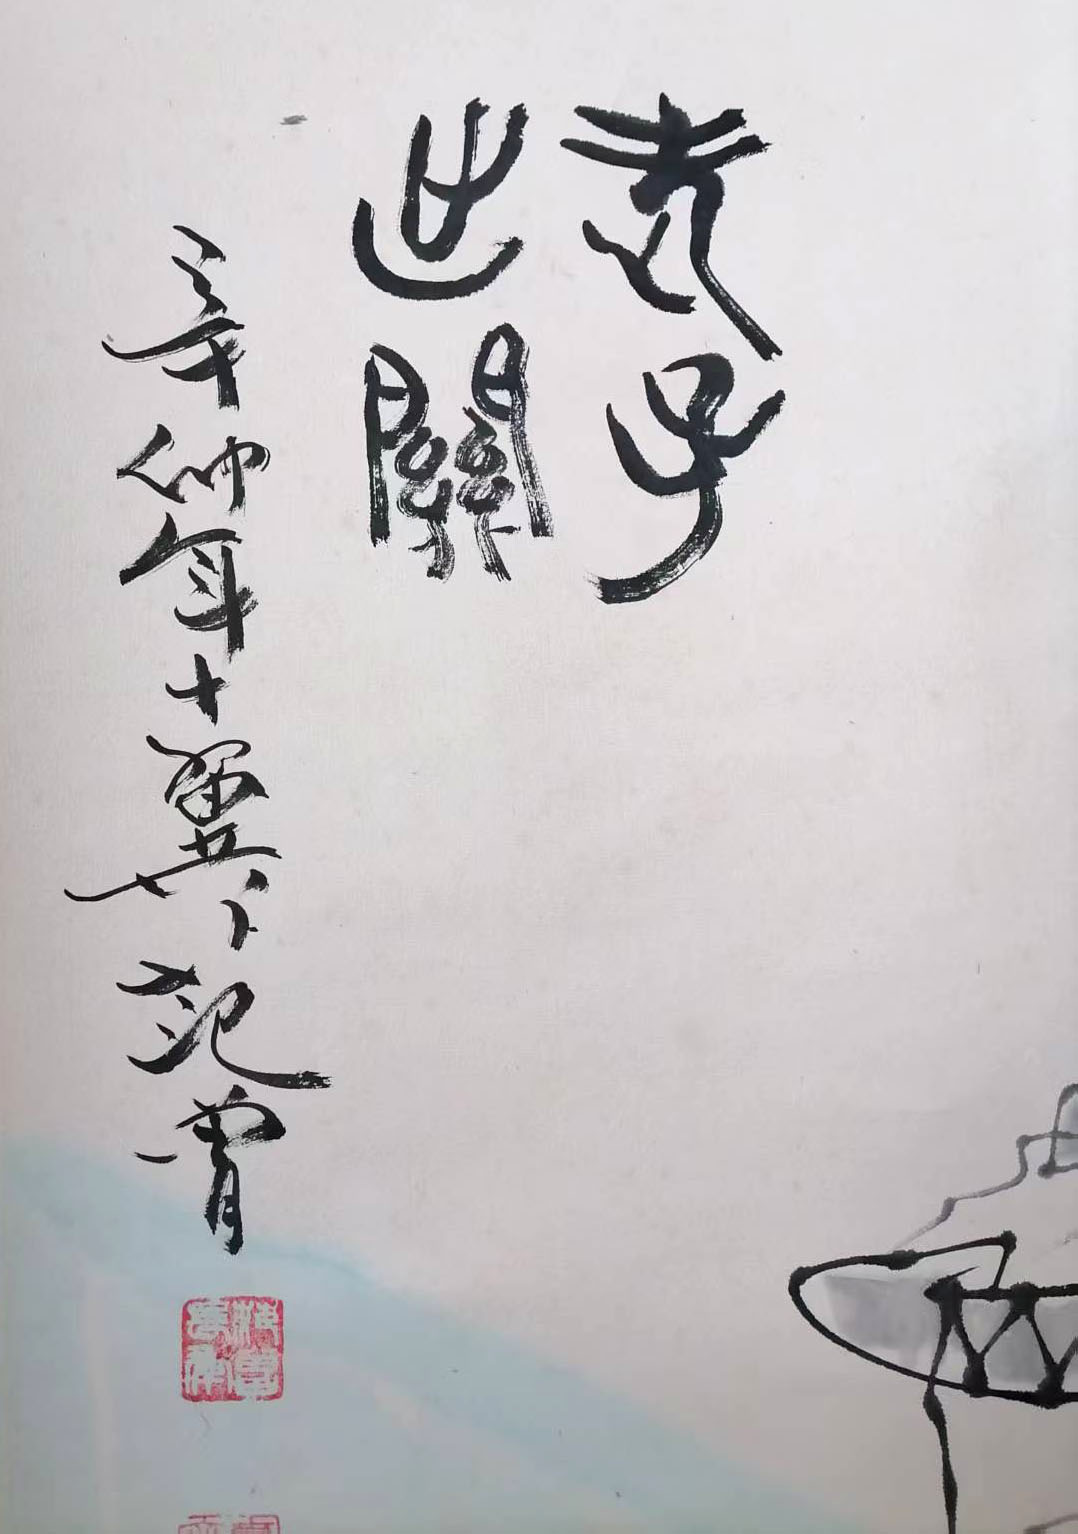 老子
出關
辛卯年十翼范曾